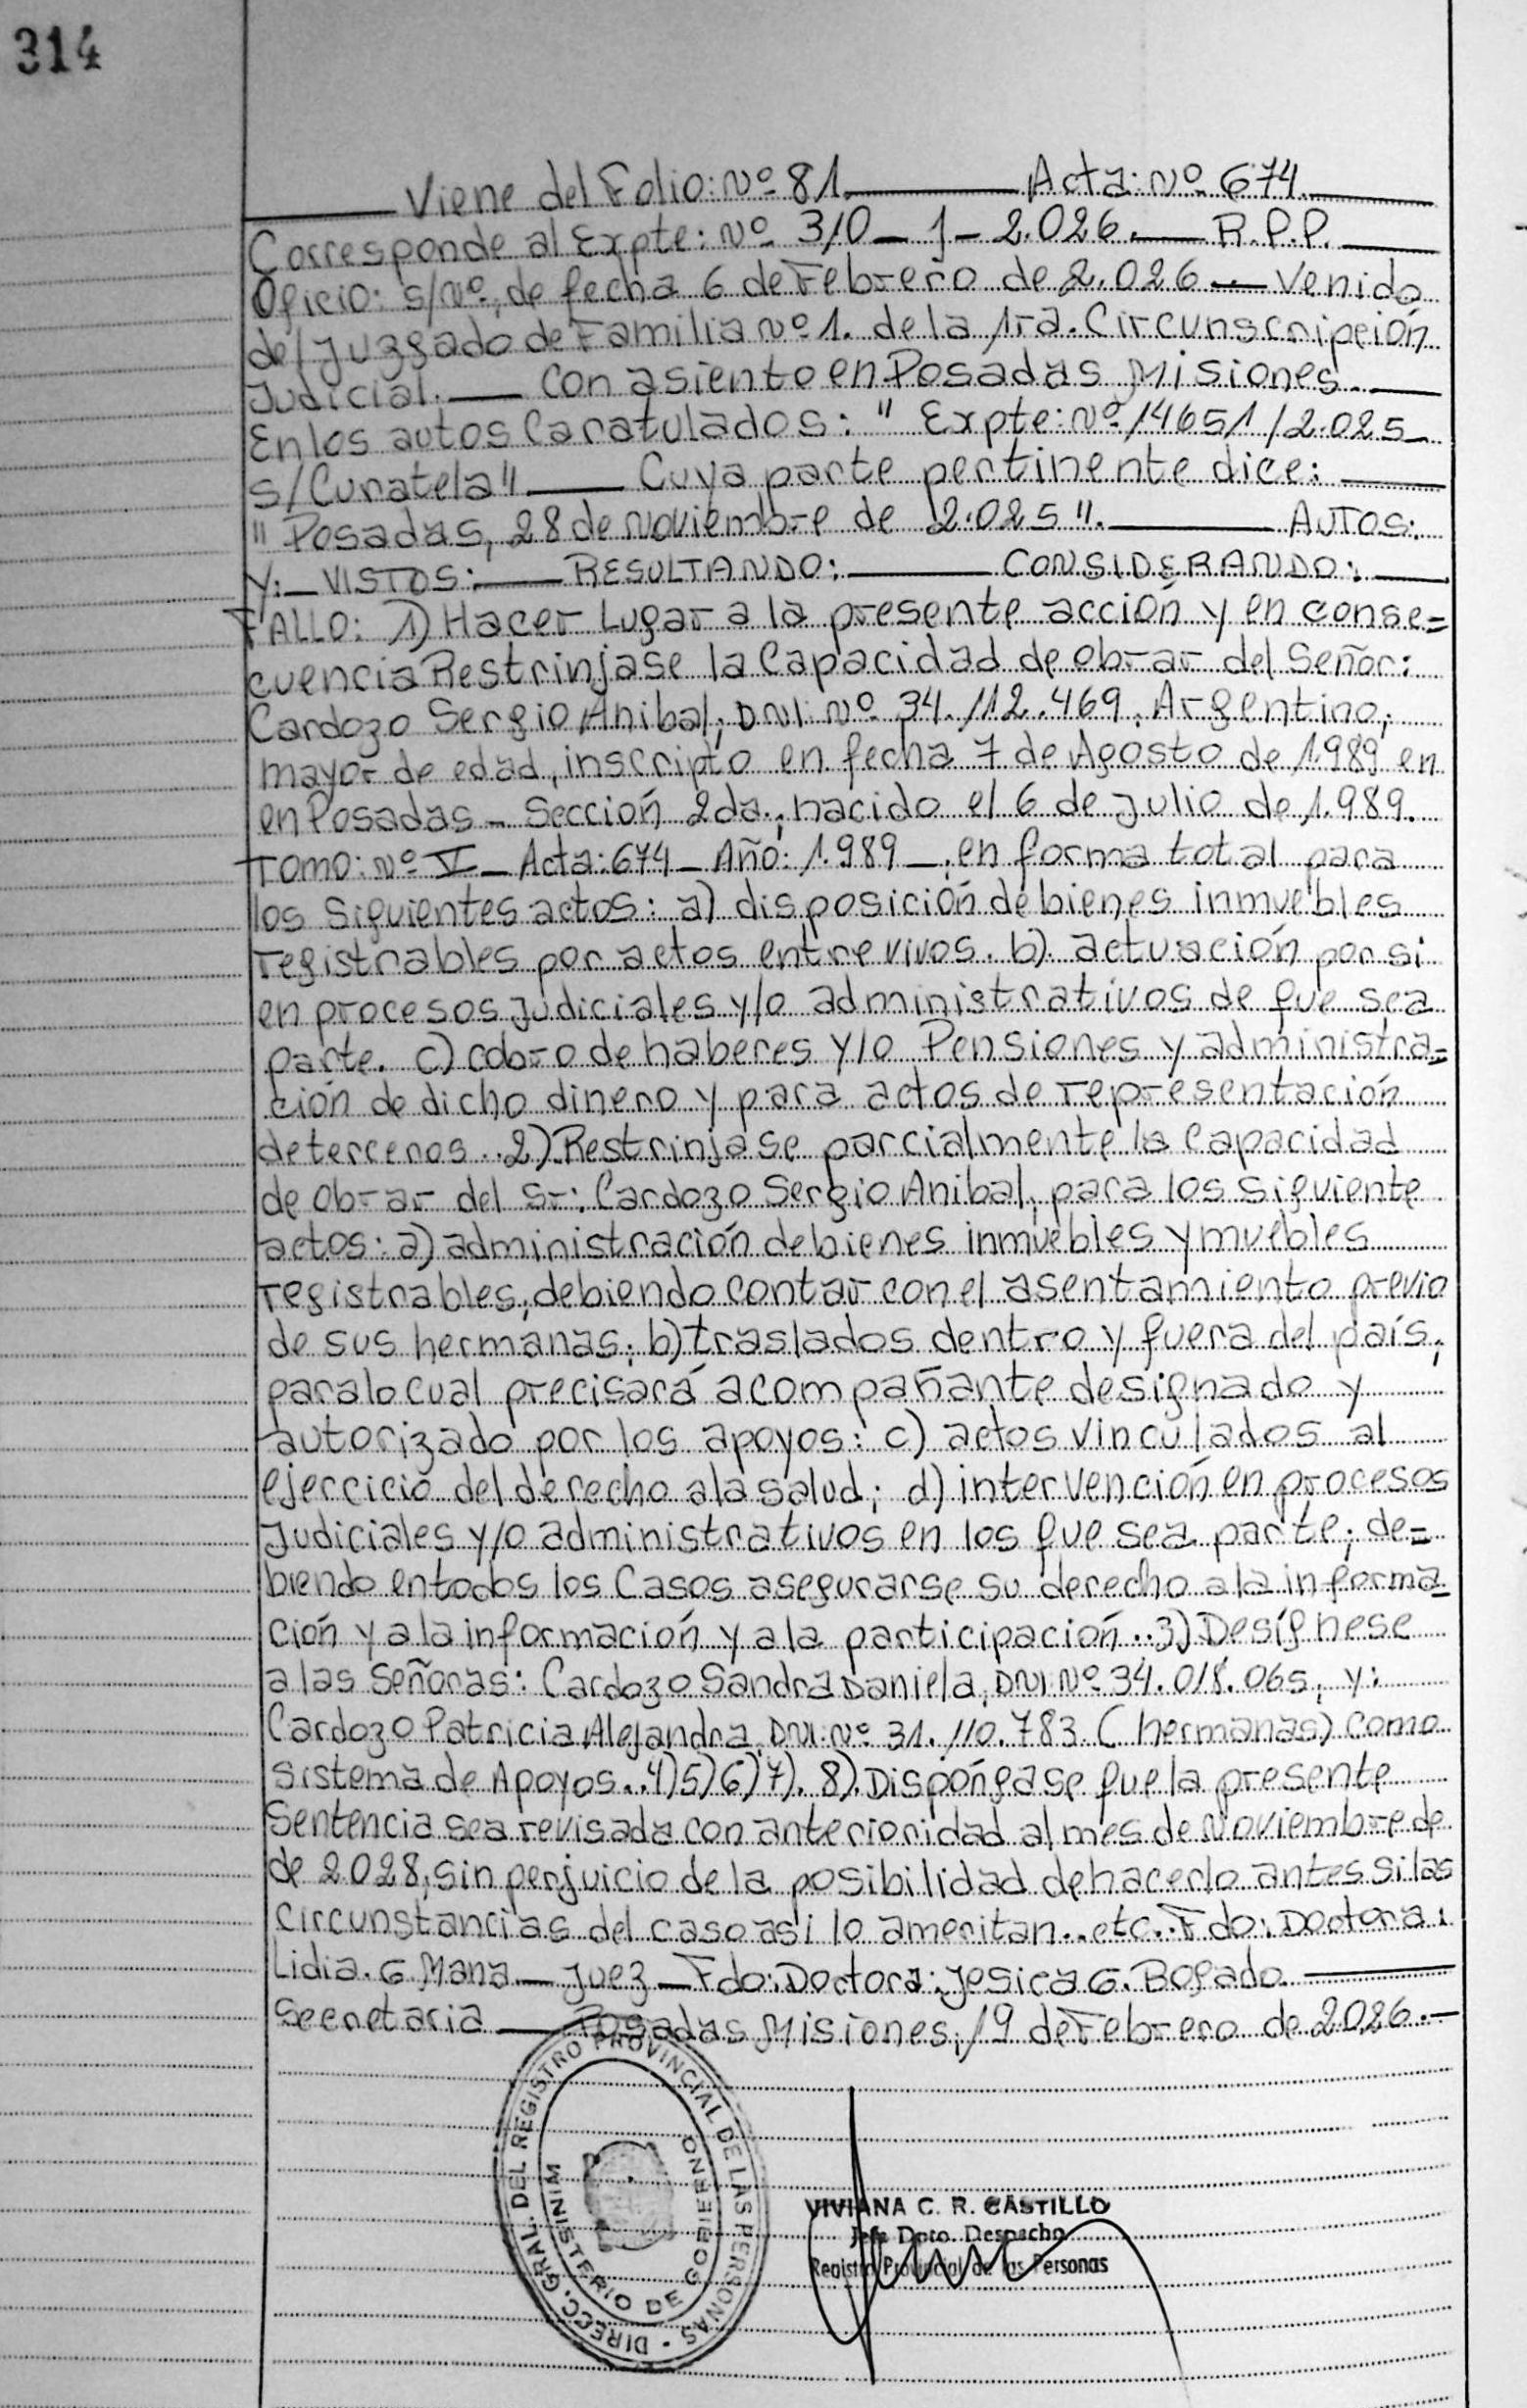 314
Viene del Folio: Nº 81 Acta: Nº 674.
Corresponde al Expte: Nº 310 – J – 2.026. R.P.P.
Oficio: s/Nº, de fecha 6 de Febrero de 2.026 – Venido
del Juzgado de Familia Nº 1. de la 1ra. Circunscripción
Judicial. Con asiento en Posadas Misiones.
En los autos Caratulados: " Expte: Nº 14651/2.025
s/Curatela" Cuya parte pertinente dice:
" Posadas, 28 de Noviembre de 2.025". AUTOS:
Y: VISTOS: RESULTANDO: CONSIDERANDO:
FALLO: 1) Hacer Lugar a la presente acción y en conse=
cuencia Restrinjase la Capacidad de obrar del Señor:
Cardozo Sergio Anibal, DNI: Nº 34.112.469, Argentino,
mayor de edad, inscripto en fecha 7 de Agosto de 1.989 en
en Posadas – Sección 2da., nacido el 6 de Julio de 1.989.
Tomo: Nº V – Acta: 674 – Año: 1.989 –, en forma total para
los Siguientes actos: a) disposición de bienes inmuebles
registrables por actos entre vivos. b) actuación por si
en procesos Judiciales y/o administrativos de que sea
parte. c) cobro de haberes y/o Pensiones y administra=
ción de dicho dinero y para actos de representación
de terceros. 2) Restrinjase parcialmente la Capacidad
de Obrar del Sr: Cardozo Sergio Anibal, para los Siguiente
actos: a) administración de bienes inmuebles y muebles
registrables, debiendo contar con el asentamiento previo
de sus hermanas; b) traslados dentro y fuera del país,
para lo cual precisará acompañante designado y
autorizado por los apoyos: c) actos vinculados al
ejercicio del derecho a la salud; d) intervención en procesos
Judiciales y/o administrativos en los que sea parte; de=
biendo en todos los Casos asegurarse su derecho a la informa=
ción y a la información y a la participación.. 3) Desígnese
a las Señoras: Cardozo Sandra Daniela, DNI Nº 34.018.065, y:
Cardozo Patricia Alejandra, DNI: Nº 31.110.783. (hermanas) Como
Sistema de Apoyos.. 4) 5) 6) 7). 8). Dispóngase que la presente
Sentencia sea revisada con anterioridad al mes de Noviembre de
de 2.028, sin perjuicio de la posibilidad de hacerlo antes si las
Circunstancias del caso asi lo ameritan.. etc. Fdo: Doctora:
Lidia. G Mana – Juez – Fdo: Doctora: Jesica G. Bogado.
Secretaria Posadas Misiones, 19 de Febrero de 2026.–
DIRECC. GRAL. DEL REGISTRO PROVINCIAL DE LAS PERSONAS
MINISTERIO DE GOBIERNO
VIVIANA C. R. CASTILLO
Jefe Dpto. Despacho
Registro Provincial de las Personas